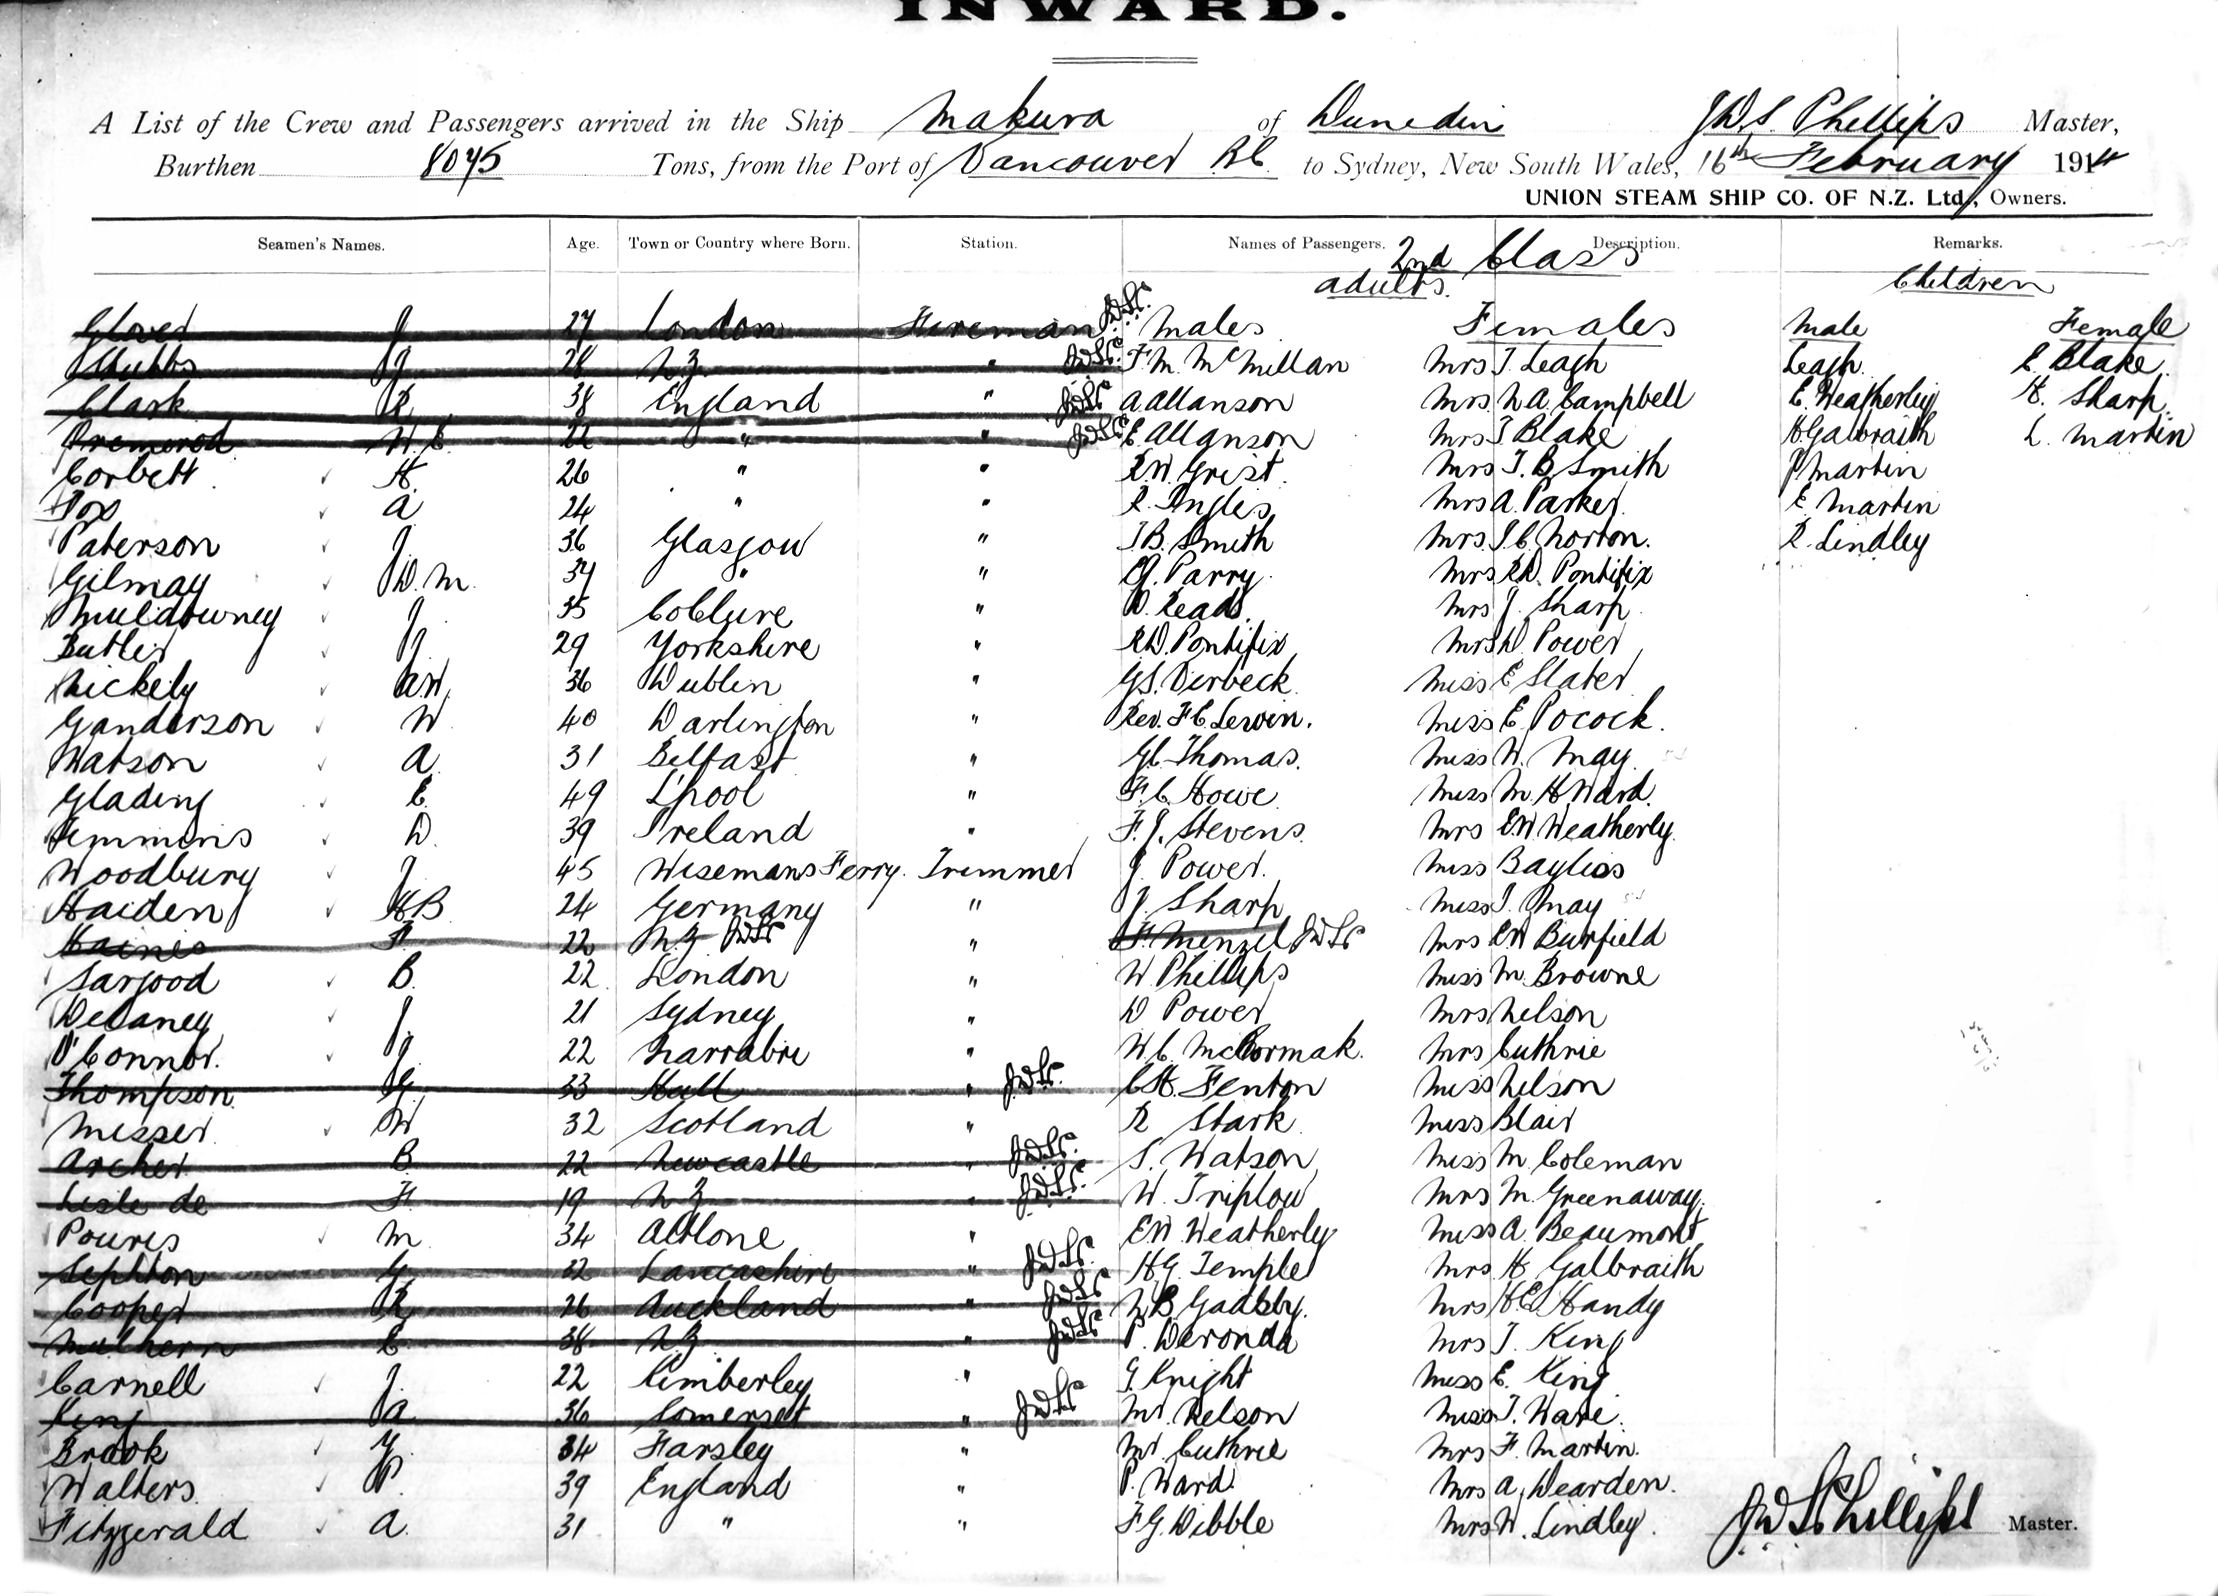 INWARD.
A List of the Crew and Passengers arrived in the Ship Makura of Dunedin J.D.S. Phillips Master,
Burthen 8075 Tons, from the Port of Vancouver B.C. to Sydney, New South Wales, 16th February 1914
UNION STEAM SHIP CO. OF N.Z. Ltd., Owners.
Seamen's Names. Age. Town or Country where Born. Station. Names of Passengers. Description. Remarks.
2nd Class
adults. Children
Glover J 27 London Fireman Males Females Male Female
Stubbs J 28 N.Z. " F.M. McMillan Mrs T. Leagh Leagh E Blake
Clark R 38 England " A. Allanson Mrs N.A. Campbell E. Weatherley H. Sharp
W.E. 22 " " E. Allanson Mrs T Blake H Galbraith L. Martin
Corbett H 26 " " R.W. Grist Mrs T.B. Smith J Martin
Fox A 24 " " R. Ingles Mrs A. Parker E. Martin
Paterson J 36 Glasgow " T.B. Smith Mrs J.C. Norton. R. Lindley
Gilmay D.M. 34 " " Parry Mrs R.D. Pontifix
Muldowney J 35 " D. Reads Mrs J. Sharp
Butler J 29 Yorkshire " R.D. Pontifix Mrs D Power
Nickely 36 Dublin " G.S. Derbeck Miss E Slater
Ganderson W 40 Darlington " Rev. F.C. Lewin. Miss E. Pocock.
Watson A 31 Belfast " G.C. Thomas. Miss W. May
Glading E 49 L'pool " F.C. Howe Miss M.H. Ward
Timmins D. 39 Ireland " F.J. Stevens Mrs E.W. Weatherly
Woodbury J 45 Wisemans Ferry. Trimmer J Power. Miss Bayliss
Haiden H B 24 Germany " J Sharp Miss T. May
Haines F 22 N.Z. JDSP " F. Menzel JDSP Mrs E.W. Burfield
Sargood B. 22 London " W Phillips Miss M. Browne
Delaney J 21 Sydney " D Power Mrs Nelson
O'Connor. J 22 Narrabri " W.C. McCormak. Mrs Guthrie
Thompson G 33 Hull " JDSP. C.H. Fenton Miss Nelson
Messer W 32 Scotland " R Stark Miss Blair
Archer B 22 Newcastle " JDSP. S. Watson Miss M. Coleman
Lisle de F 19 N.Z. " JDSP. W. Triplow Mrs M. Greenaway.
Poures M 34 Athlone " E.W. Weatherly Miss A. Beaumont
Sephton G 32 Lancashire " JDSP. H.G. Temple Mrs H Galbraith
Cooper R 26 Auckland " JDSP N.B. Gadsby. Mrs Handy
Mulhern E 38 N.Z. " JDSP P. Deronda Mrs T. King
Carnell J. 22 Kimberley " G. Knight Miss E. King
King A 36 Somerset " JDSP Mr. Nelson Miss T. Ware.
Brook Y. 34 Farsley " Mr Guthrie Mrs F. Martin.
Walters P. 39 England " P. Ward Mrs A. Dearden.
Fitzgerald A 31 " " F.G. Dibble Mrs W. Lindley.
JDS Phillips Master.